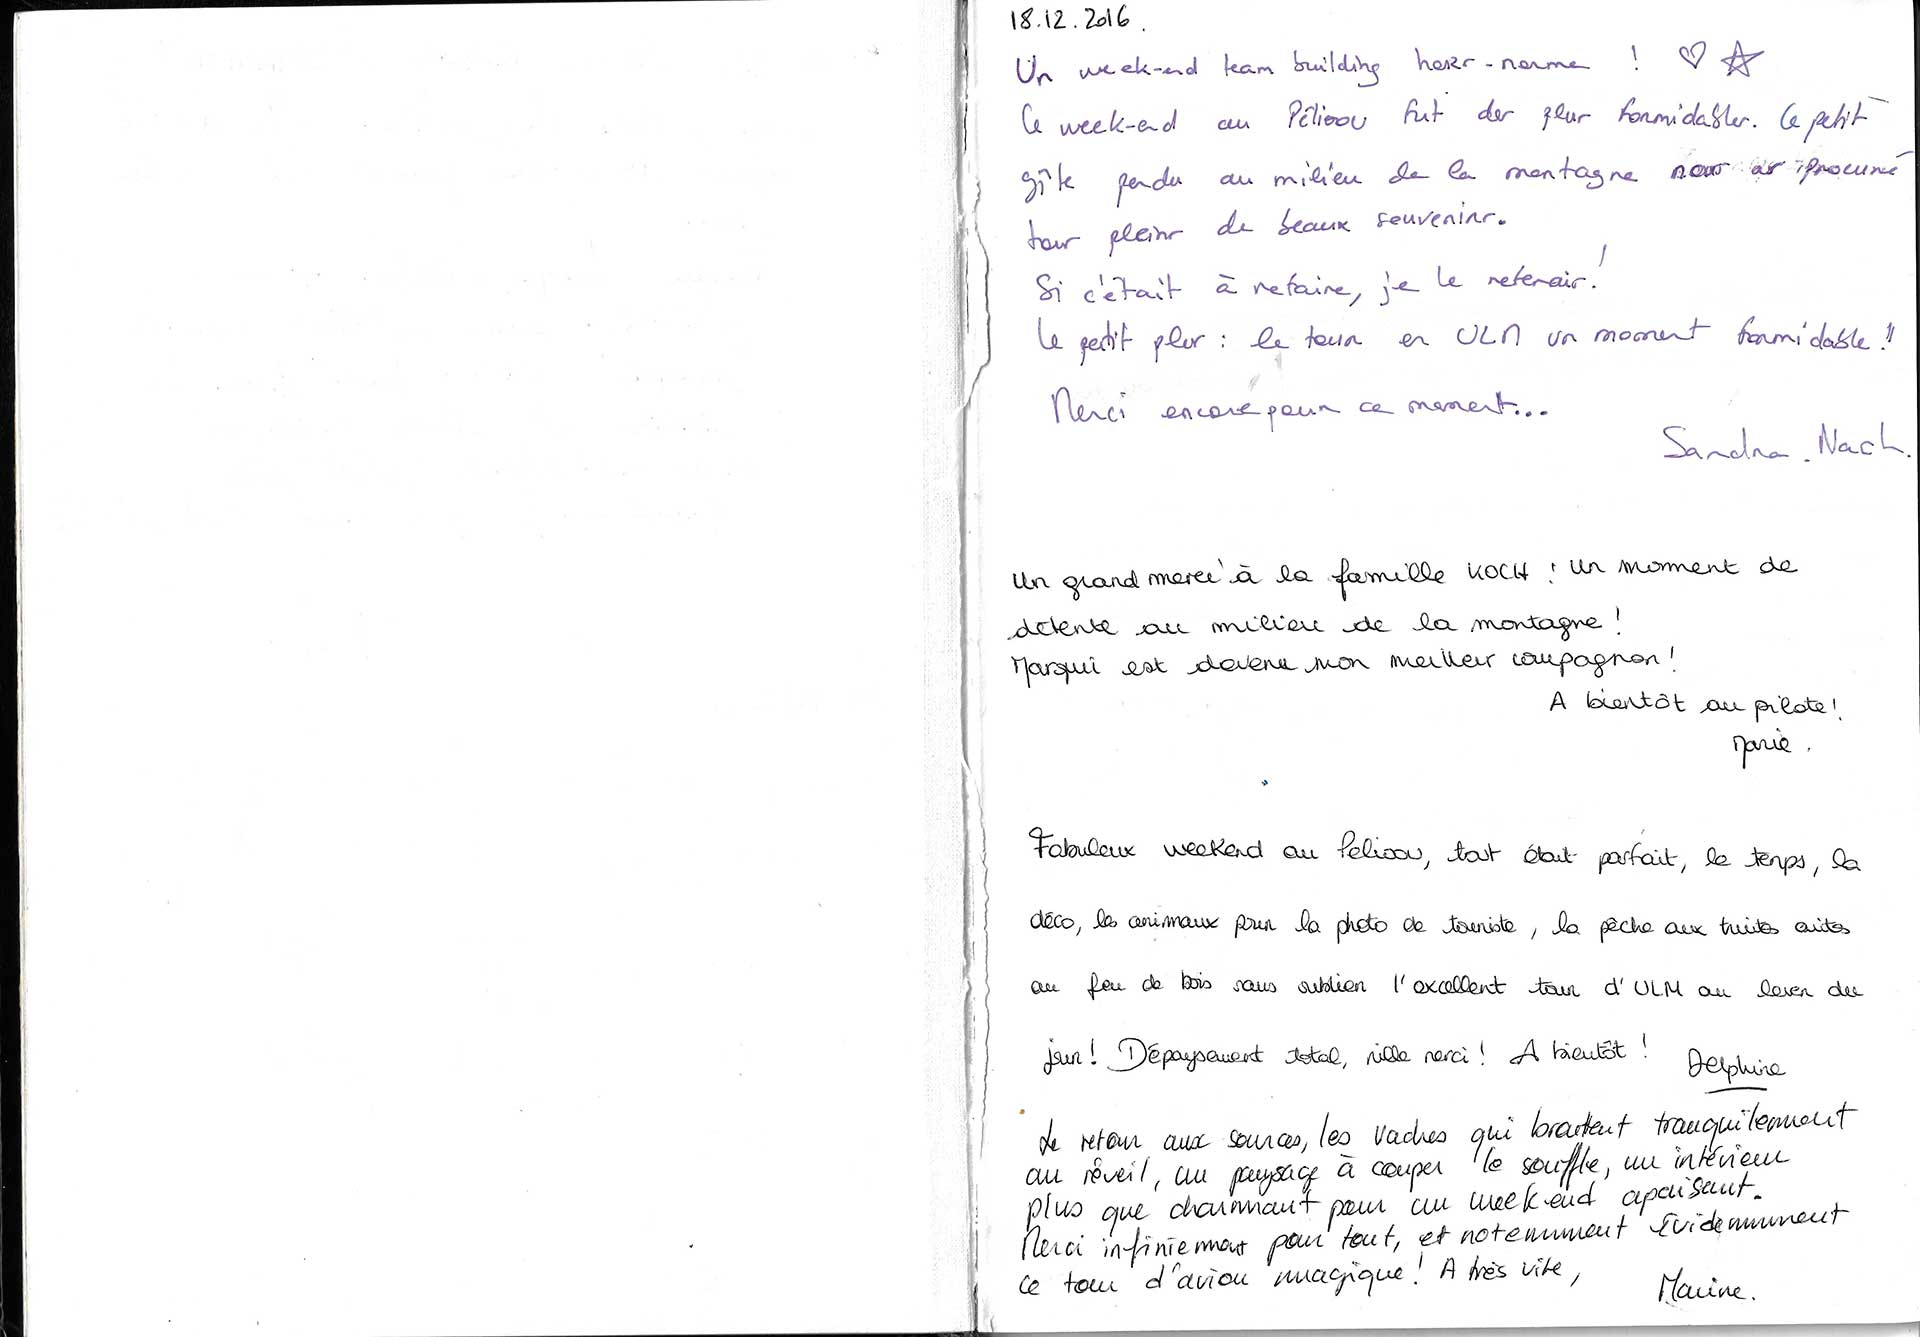 18.12.2016.
Un week-end team building hors-norme !
Ce week-end au Pélissou fut des plus formidables. Ce petit
gîte perdu au milieu de la montagne nous as procuré
tous pleins de beaux souvenirs.
Si c'était à refaire, je le referais!
Le petit plus : le tour en ULM un moment formidable!!
Merci encore pour ce moment...
Sandra. Nach.
Un grand merci à la famille KOCH ! Un moment de
détente au milieu de la montagne !
Marqui est devenu mon meilleur compagnon !
A bientôt au pilote !
Marie.
Fabuleux weekend au Pelissou, tout était parfait, le temps, la
déco, les animaux pour la photo de touriste, la pêche aux truites cuites
au feu de bois sans oublier l'excellent tour d'ULM au lever du
jour! Dépaysement total, mille merci! A bientôt !
Delphine
Le retour aux sources, les vaches qui broutent tranquilement
au réveil, un paysage à couper le souffle, un intérieur
plus que charmant pour un week-end apaisant.
Merci infiniement pour tout, et notemment Evidemmment
ce tour d'avion magique! A très vite,
Marine.